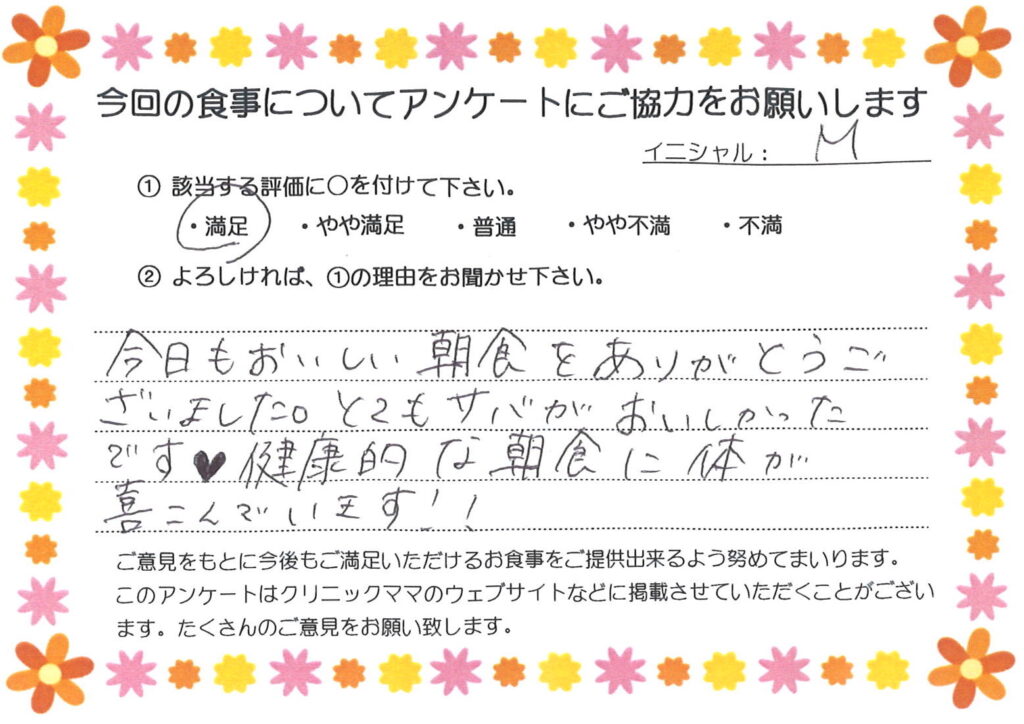 今回の食事についてアンケートにご協力をお願いします
イニシャル： M
① 該当する評価に○を付けて下さい。
・満足 ・やや満足 ・普通 ・やや不満 ・不満
② よろしければ、①の理由をお聞かせ下さい。
今日もおいしい朝食をありがとうご
ざいました。とてもサバがおいしかった
です♥健康的な朝食に体が
喜こんでいます!!
ご意見をもとに今後もご満足いただけるお食事をご提供出来るよう努めてまいります。
このアンケートはクリニックママのウェブサイトなどに掲載させていただくことがござい
ます。たくさんのご意見をお願い致します。